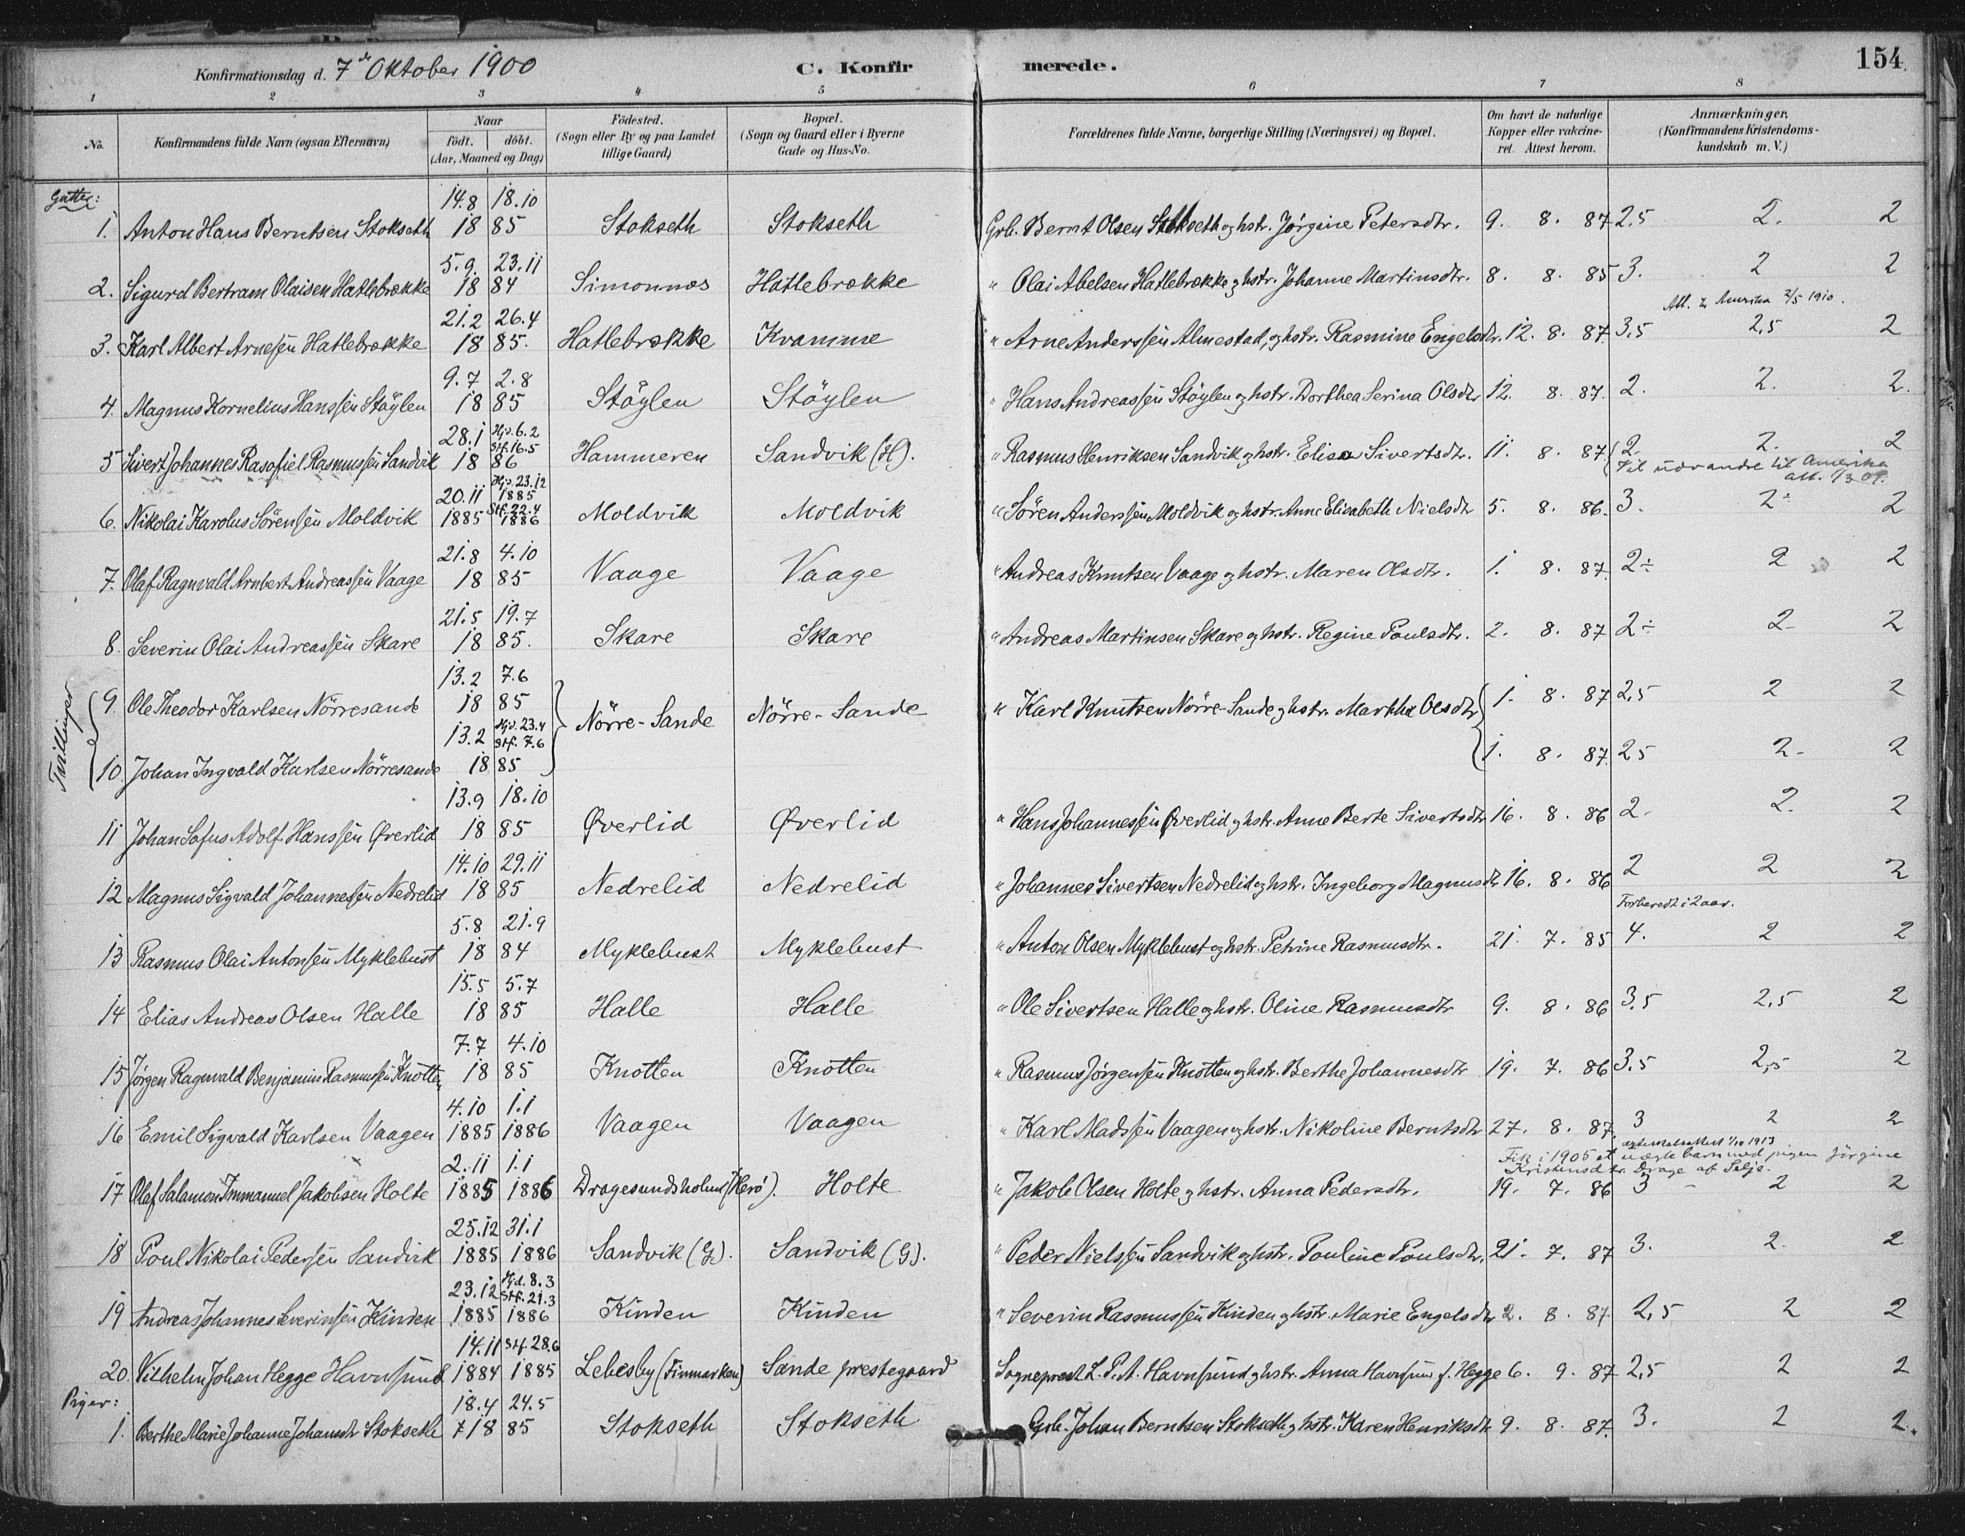 154
Konfirmationsdag d. 7de Oktober 1900 C. Konfirmerede.
1 2 3 4 5 6 7 8
No. Konfirmandens fulde Navn (ogsaa Efternavn) Naar födt. döbt. (Aar, Maaned og Dag) Födested. (Sogn eller By og paa Landet tillige Gaard) Bopæl. (Sogn og Gaard eller i Byerne Gade og Hus-No. Forældrenes fulde Navne, borgerlige Stilling (Næringsvei) og Bopæl. Om havt de naturlige Kopper eller vakcineret. Attest herom. Anmærkninger. (Konfirmandens Kristendomskundskab m. V.)
Gutter:
14.8 18.10
1. Anton Hans Berntsen Stokseth 18 85 Stokseth Stokseth Grb. Bernt Olsen Stokseth og hstr. Jørgine Petersdtr. 9. 8. 87 2,5 2. 2
5.9. 23.11
2. Sigurd Bertram Olaisen Hatlebrække 18 84 Simonnæs Hatlebrække " Olai Abelsen Hatlebrække og hstr. Johanne Martinsdtr. 8. 8. 85 3. 2 2
21.2 26.4 Att. t. Amerika 2/5 1910.
3. Karl Albert Arnessen Hatlebrække 18 85. Hatlebrække Kvamme " Arne Anderssen Almestad, og hstr. Rasmine Engelsdtr. 12. 8. 87 3,5 2,5 2
9.7 2.8
4. Magnus Kornelius Hanssen Støylen 18 85 Støylen Støylen " Hans Andreassen Støylen og hstr. Dorthea Serina Olsdtr 12. 8. 87. 2. 2. 2.
28.1 Hjd. 6.2 Stf. 16.5
5 Sivert Johannes Rasofiel Rasmussen Sandvik 18 86 Hammeren Sandvik (H). " Rasmus Henriksen Sandvik og hstr. Elisa Sivertsdtr. 11. 8. 87 2. 2. 2
Til udvandr. til Amerika att.
20.11 Hjd. 23.12 1885 Stf. 22.4
6. Nikolai Karolus Sörenssen Moldvik 1885 1886 Moldvik Moldvik " Sören Anderssen Moldvik og hstr. Anne Elisabeth Nielsdtr 5. 8. 86. 3. 2 2
21.8 4.10
7. Olaf Ragnvald Arnbert Andreassen Vaage 18 85 Vaage Vaage " Andreas Knutsen Vaage og hstr. Maren Olsdtr. 1. 8. 87. 2÷ 2 2
21.5 19.7
8. Severin Olai Andreassen Skare 18 85. Skare Skare " Andreas Martinsen Skare og hstr. Regine Poulsdtr. 2. 8. 87 2÷ 2- 2
Tvillinger
13.2 7.6
9. Ole Theodor Karlsen Nörresande 18 85 Nörre-Sande Nörre-Sande " Karl Knutsen Nörre-Sande og hstr. Marthe Olsdtr 1. 8. 87 2,5 2 2
13.2 Hjd. 23.4 Stf. 7.6
10. Johan Ingvald Karlsen Nörresande 18 85 1. 8. 87. 25 2- 2
13.9 18.10
11 Johan Sofus Adolf Hanssen Øverlid 18 85 Øverlid Øverlid " Hans Johannessen Øverlid og hstr. Anne Berte Sivertsdtr 16. 8. 86 2- 2. 2
14.10 29.11
12 Magnus Sigvald Johannessen Nedrelid 18 85 Nedrelid Nedrelid " Johannes Sivertsen Nedrelid og hstr. Ingeborg Magnusdtr 16. 8. 86 2 2 2
5.8 21.9 Forberedt i 2 aar.
13 Rasmus Olai Antonsen Myklebust 18 84 Myklebust Myklebust " Anton Olsen Myklebust og hstr. Petrine Rasmusdtr. 21. 7. 85 4. 2 2
15.5 5.7
14 Elias Andreas Olsen Halle 18 85 Halle Halle " Ole Sivertsen Halle og hstr. Oline Rasmusdtr 9. 8. 86 3,5 2,5 2
7.7 4.10
15 Jørgen Ragnvald Benjamin Rasmussen Knotten 18 85 Knotten Knotten " Rasmus Jørgenssen Knotten og hstr. Berthe Johannesdtr 19. 7. 86 3,5 2,5 2
4.10 1.1
16 Emil Sigvald Karlsen Vaagen 1885 1886 Vaagen Vaagen " Karl Madssen Vaagen og hstr. Nikoline Berntsdtr 27. 8. 87. 3 2 2
1/10 1913
Fik i 1905 et uægte barn med pigen Jörgine Kristensdtr. Drage af Selje.
2.11 1.1
17 Olaf Salamon Immanuel Jakobsen Holte 1885 1886 Dragesundsholmen (Herø). Holte " Jakob Olsen Holte og hstr. Anna Pedersdtr. 19. 7. 86 3 - 2 2
25.12 31.1
18 Poul Nikolai Pederssen Sandvik 1885 1886 Sandvik (G). Sandvik (G). " Peder Nielssen Sandvik og hstr. Pouline Poulsdtr. 21. 7. 87 3. 2. 2
23.12 Hjd. 8.3 Stf. 21.3
19 Andreas Johannes Severinsen Kinden 1885 1886 Kinden Kinden " Severin Rasmussen Kinden og hstr. Marie Engelsdtr 2. 8. 87. 2,5 2 2
14.11 Stf. 28.6
20. Vilhelm Johan Hegge Havnsund 1884 1885 Lebesby (Finmarken) Sande prestegaard Sogneprest L. P. A. Havnsund og hstr. Anna Havnsund f. Hegge 6. 9. 87 2,5 2 2
Piger:
18.4 24.5
1. Berthe Marie Johanne Johansdtr Stokseth 18 85 Stokseth Stokseth Grb. Johan Berntsen Stokseth og hstr. Karen Henriksdtr 9. 8. 87. 3. 2 2.